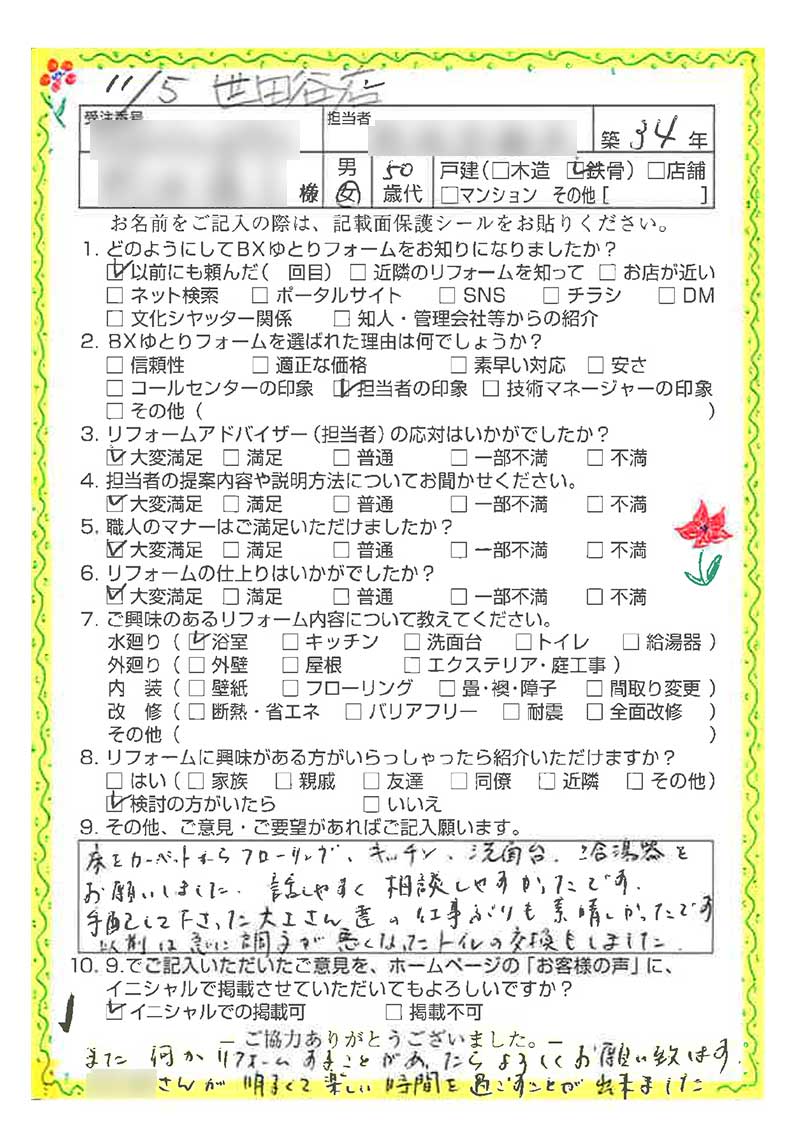 11/5 世田谷店
受注番号 担当者 築 34 年
様 男 女 50 歳代 戸建(□木造 ☑鉄骨) □店舗
□マンション その他[ ]
お名前をご記入の際は、記載面保護シールをお貼りください。
1. どのようにしてBXゆとりフォームをお知りになりましたか?
☑以前にも頼んだ( 回目) □近隣のリフォームを知って □お店が近い
□ネット検索 □ポータルサイト □SNS □チラシ □DM
□文化シヤッター関係 □知人・管理会社等からの紹介
2. BXゆとりフォームを選ばれた理由は何でしょうか?
□信頼性 □適正な価格 □素早い対応 □安さ
□コールセンターの印象 ☑担当者の印象 □技術マネージャーの印象
□その他( )
3. リフォームアドバイザー(担当者)の応対はいかがでしたか?
☑大変満足 □満足 □普通 □一部不満 □不満
4. 担当者の提案内容や説明方法についてお聞かせください。
☑大変満足 □満足 □普通 □一部不満 □不満
5. 職人のマナーはご満足いただけましたか?
☑大変満足 □満足 □普通 □一部不満 □不満
6. リフォームの仕上りはいかがでしたか?
☑大変満足 □満足 □普通 □一部不満 □不満
7. ご興味のあるリフォーム内容について教えてください。
水廻り(☑浴室 □キッチン □洗面台 □トイレ □給湯器)
外廻り(□外壁 □屋根 □エクステリア・庭工事)
内 装(□壁紙 □フローリング □畳・襖・障子 □間取り変更)
改 修(□断熱・省エネ □バリアフリー □耐震 □全面改修 )
その他( )
8. リフォームに興味がある方がいらっしゃったら紹介いただけますか?
□はい(□家族 □親戚 □友達 □同僚 □近隣 □その他)
☑検討の方がいたら □いいえ
9. その他、ご意見・ご要望があればご記入願います。
床をカーペットからフローリング、キッチン、洗面台、給湯器を
お願いしました。話しやすく相談しやすかったです。
手配して下さった大工さん達の仕事ぶりも素晴しかったです
以前は急に調子が悪くなったトイレの交換もしました。
10. 9.でご記入いただいたご意見を、ホームページの「お客様の声」に、
イニシャルで掲載させていただいてもよろしいですか?
☑イニシャルでの掲載可 □掲載不可
― ご協力ありがとうございました。―
また何かリフォームすることがあったらよろしくお願い致します。
さんが明るくて楽しい時間を過ごすことが出来ました